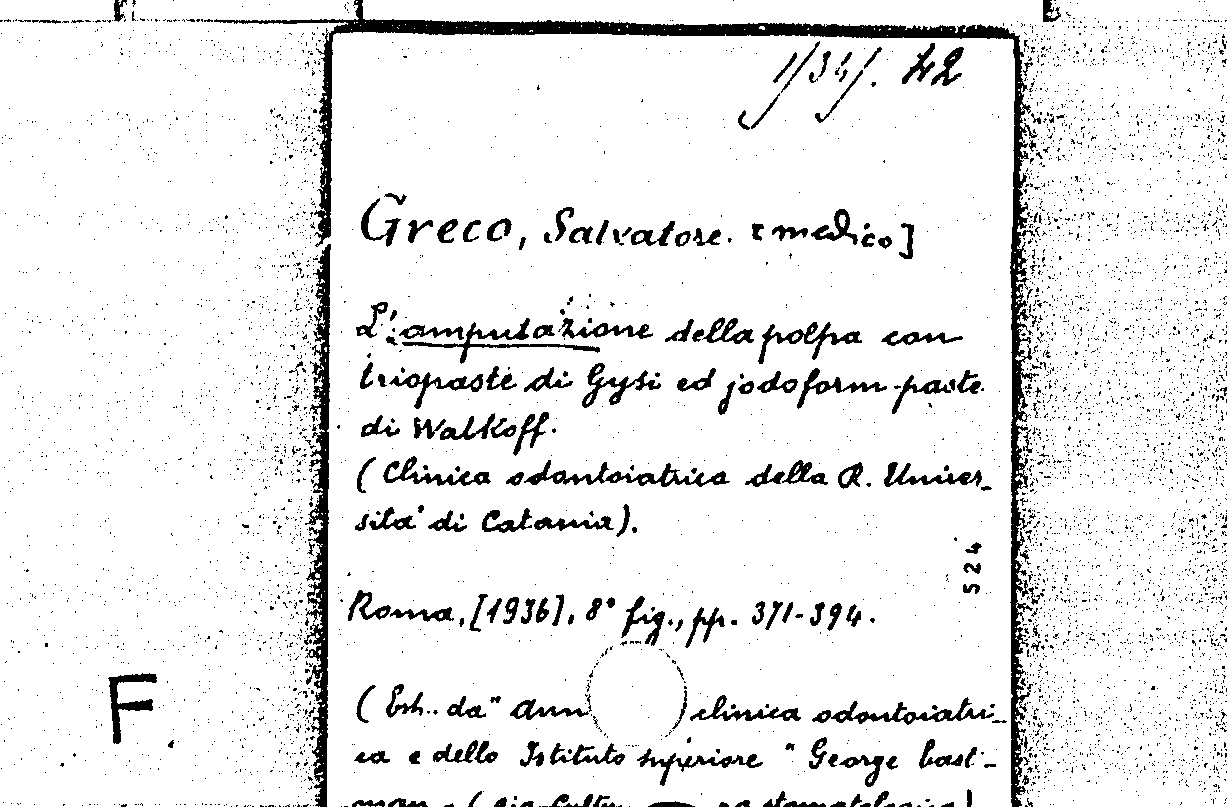 1/34/. 42
Greco, Salvatore. [medico]
L'amputazione della polpa con
triopaste di Gysi ed jodoform-paste
di Walkoff.
(Clinica odontoiatrica della R. Univer-
sità di Catania).
524
Roma, [1936], 8° fig., pp. 371-394.
F
(Estr. da "Ann clinica odontoiatri-
ca e dello Istituto superiore "George East-
man